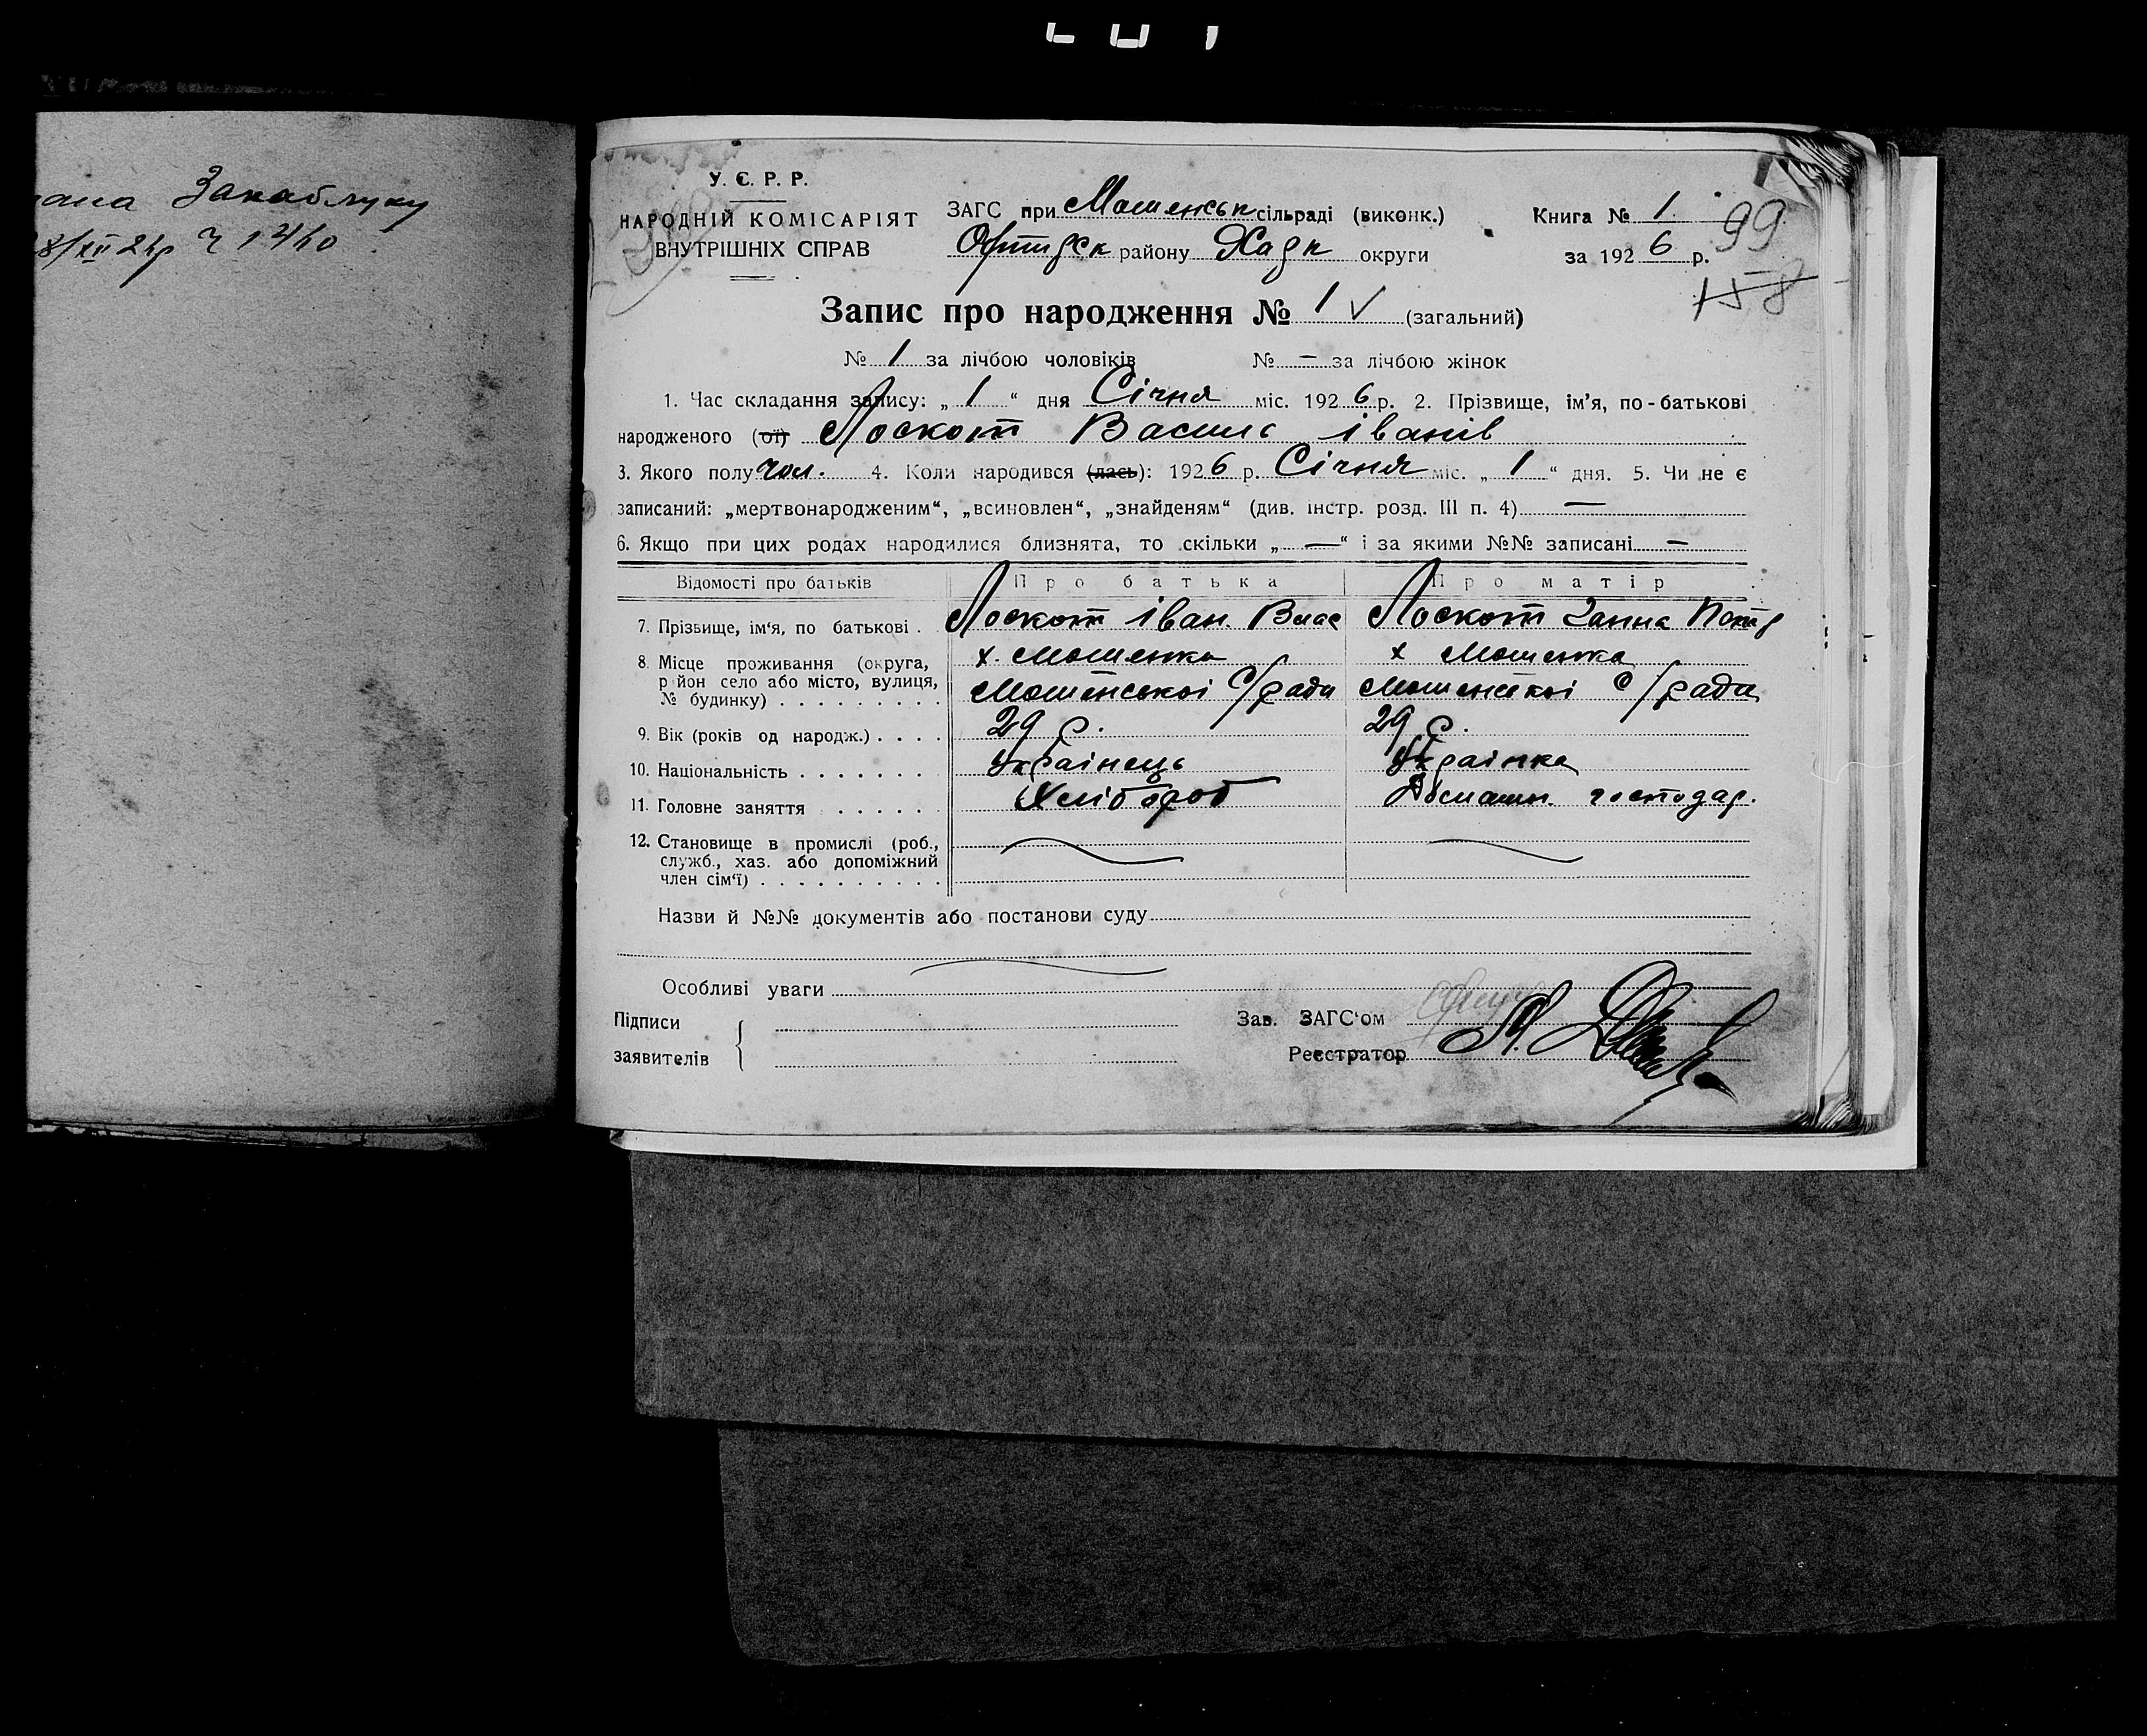 Закаблуку
У. С. Р. Р.
НАРОДНІЙ КОМІСАРІЯТ
ВНУТРІШНІХ СПРАВ
ЗАГС при Мошенськ сільраді (виконк.)
району Харк округи
Книга № 1
за 1926 р.
99
158
Запис про народження № 1 (загальний)
№ 1 за лічбою чоловіків № — за лічбою жінок
1. Час складання запису: „ 1 “ дня Січня міс. 1926 р. 2. Прізвище, ім’я, по-батькові
народженого (ої) Лоскот Василь іванів
3. Якого полу чол. 4. Коли народився (лась): 1926 р. Січня міс. „ 1 “ дня. 5. Чи не є
записаний: „мертвонародженим“, „всиновлен“, „знайденям“ (див. інстр. розд. III п. 4) —
6. Якщо при цих родах народилися близнята, то скільки „ — “ і за якими №№ записані —
Відомості про батьків Про батька Про матір
7. Прізвище, ім‘я, по батькові . Лоскот іван Влас Лоскот Ганна
8. Місце проживання (округа, х. Мошенка х Мошенка
район село або місто, вулиця, Мошенської С/ради Мошенської С/ради
№ будинку) . . . . . . . . .
9. Вік (років од народж.) . . . . 29 р. 29 р.
10. Національність . . . . . . . Українець Українка
11. Головне заняття . . . . . Хлібороб Домашн. господар.
12. Становище в промислі (роб.,
служб., хаз. або допоміжний
член сім‘ї) . . . . . . . . . .
Назви й №№ документів або постанови суду
Особливі уваги
Підписи
заявителів
Зав. ЗАГС‘ом
Реєстратор